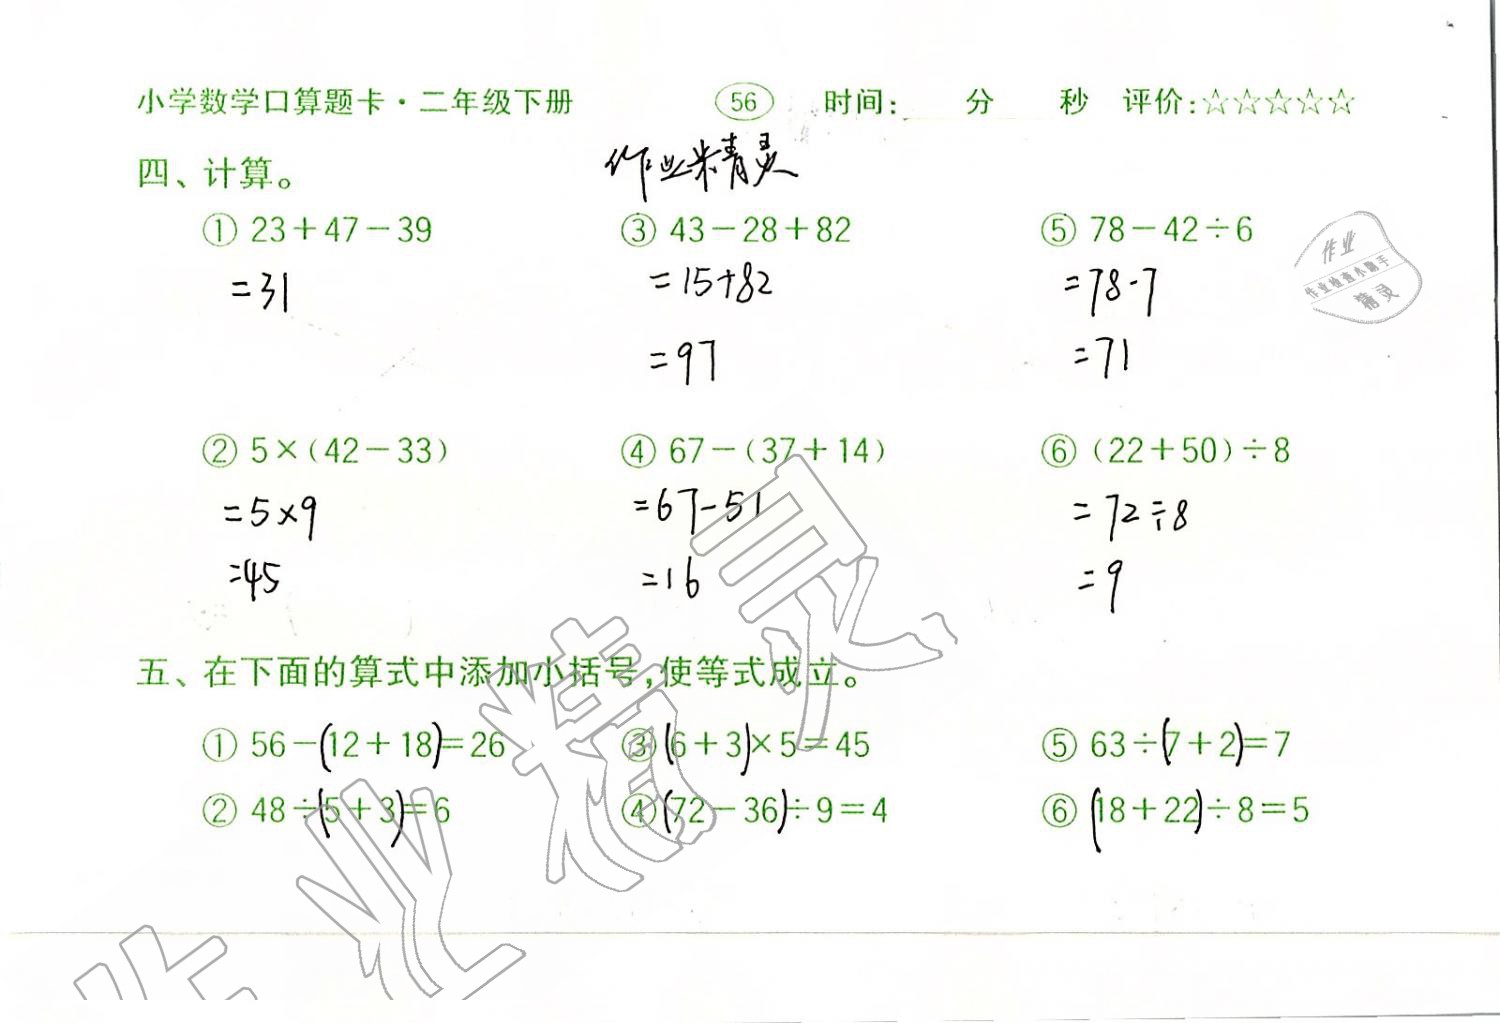 小学数学口算题卡·二年级下册 56 时间: 分 秒 评价:☆☆☆☆☆
四、计算。 作业精灵
① 23+47-39 ③ 43-28+82 ⑤ 78-42÷6
=31 =15+82 =78-7
=97 =71
作业
作业检查小助手
精灵
② 5×(42-33) ④ 67-(37+14) ⑥ (22+50)÷8
=5×9 =67-51 =72÷8
=45 =16 =9
五、在下面的算式中添加小括号,使等式成立。
① 56-(12+18)=26 ③ (6+3)×5=45 ⑤ 63÷(7+2)=7
② 48÷(5+3)=6 ④ (72-36)÷9=4 ⑥ (18+22)÷8=5
作业精灵